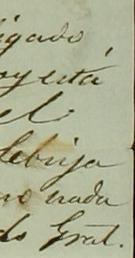 ligado
oy está
el
Lebrija
no nada
do Gral.